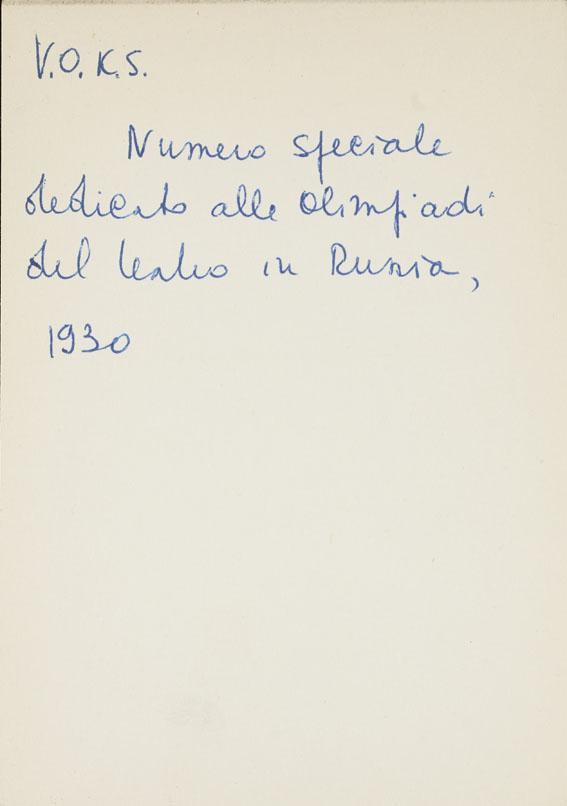 V.O.K.S.
Numero speciale
dedicato alle Olimpiadi
del teatro in Russia,
1930